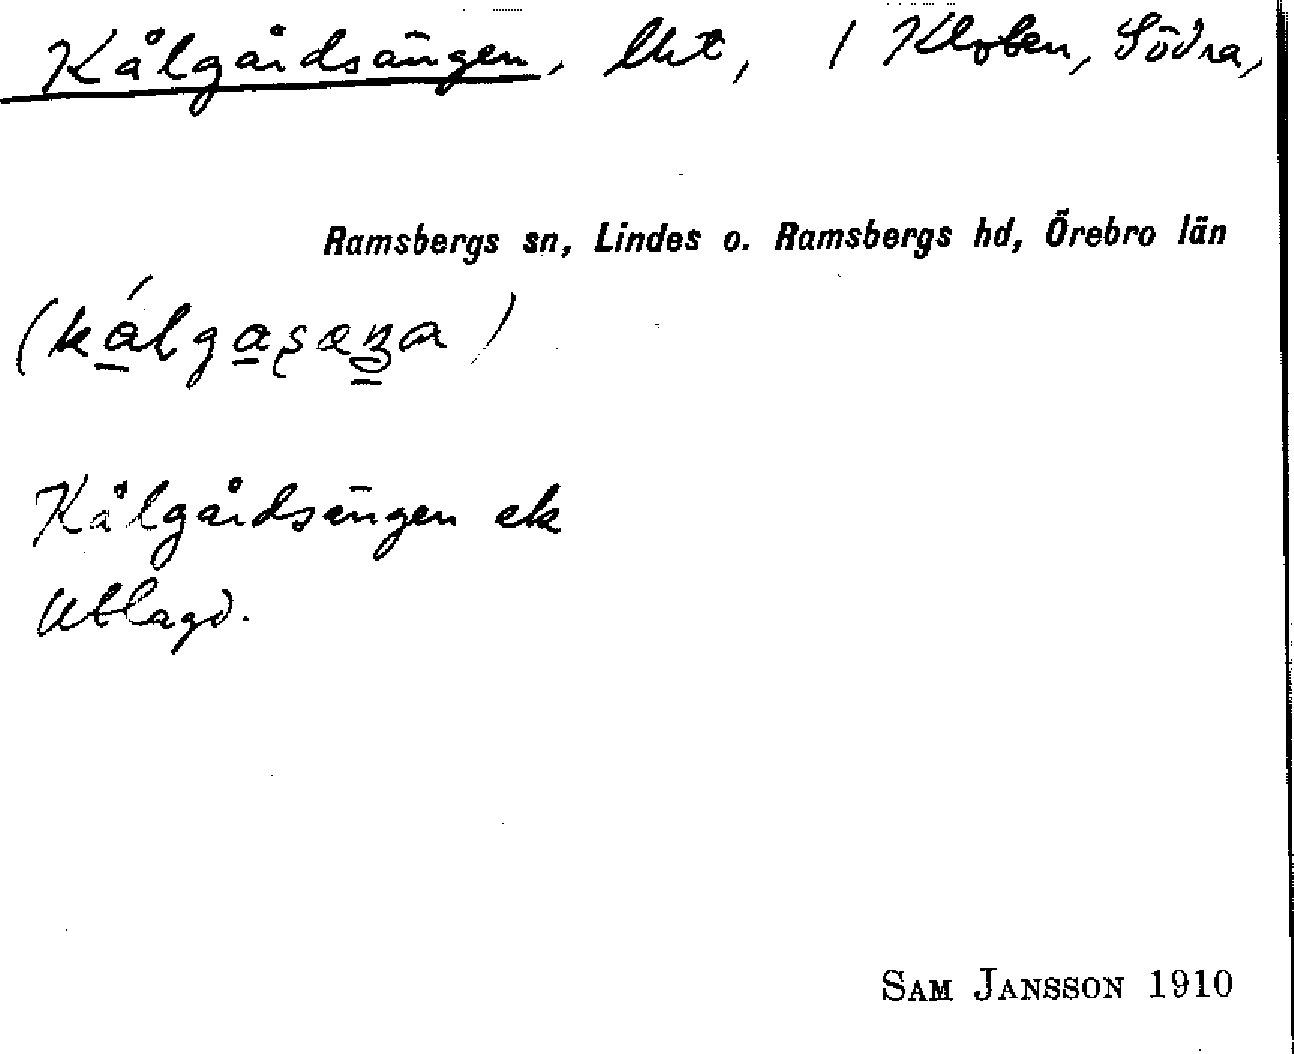 Kålgårdsängen, lht, / Kloten, Södra,
Ramsbergs sn, Lindes o. Ramsbergs hd, Örebro län
Kålgårdsängen ek
Utlagd.
SAM JANSSON 1910